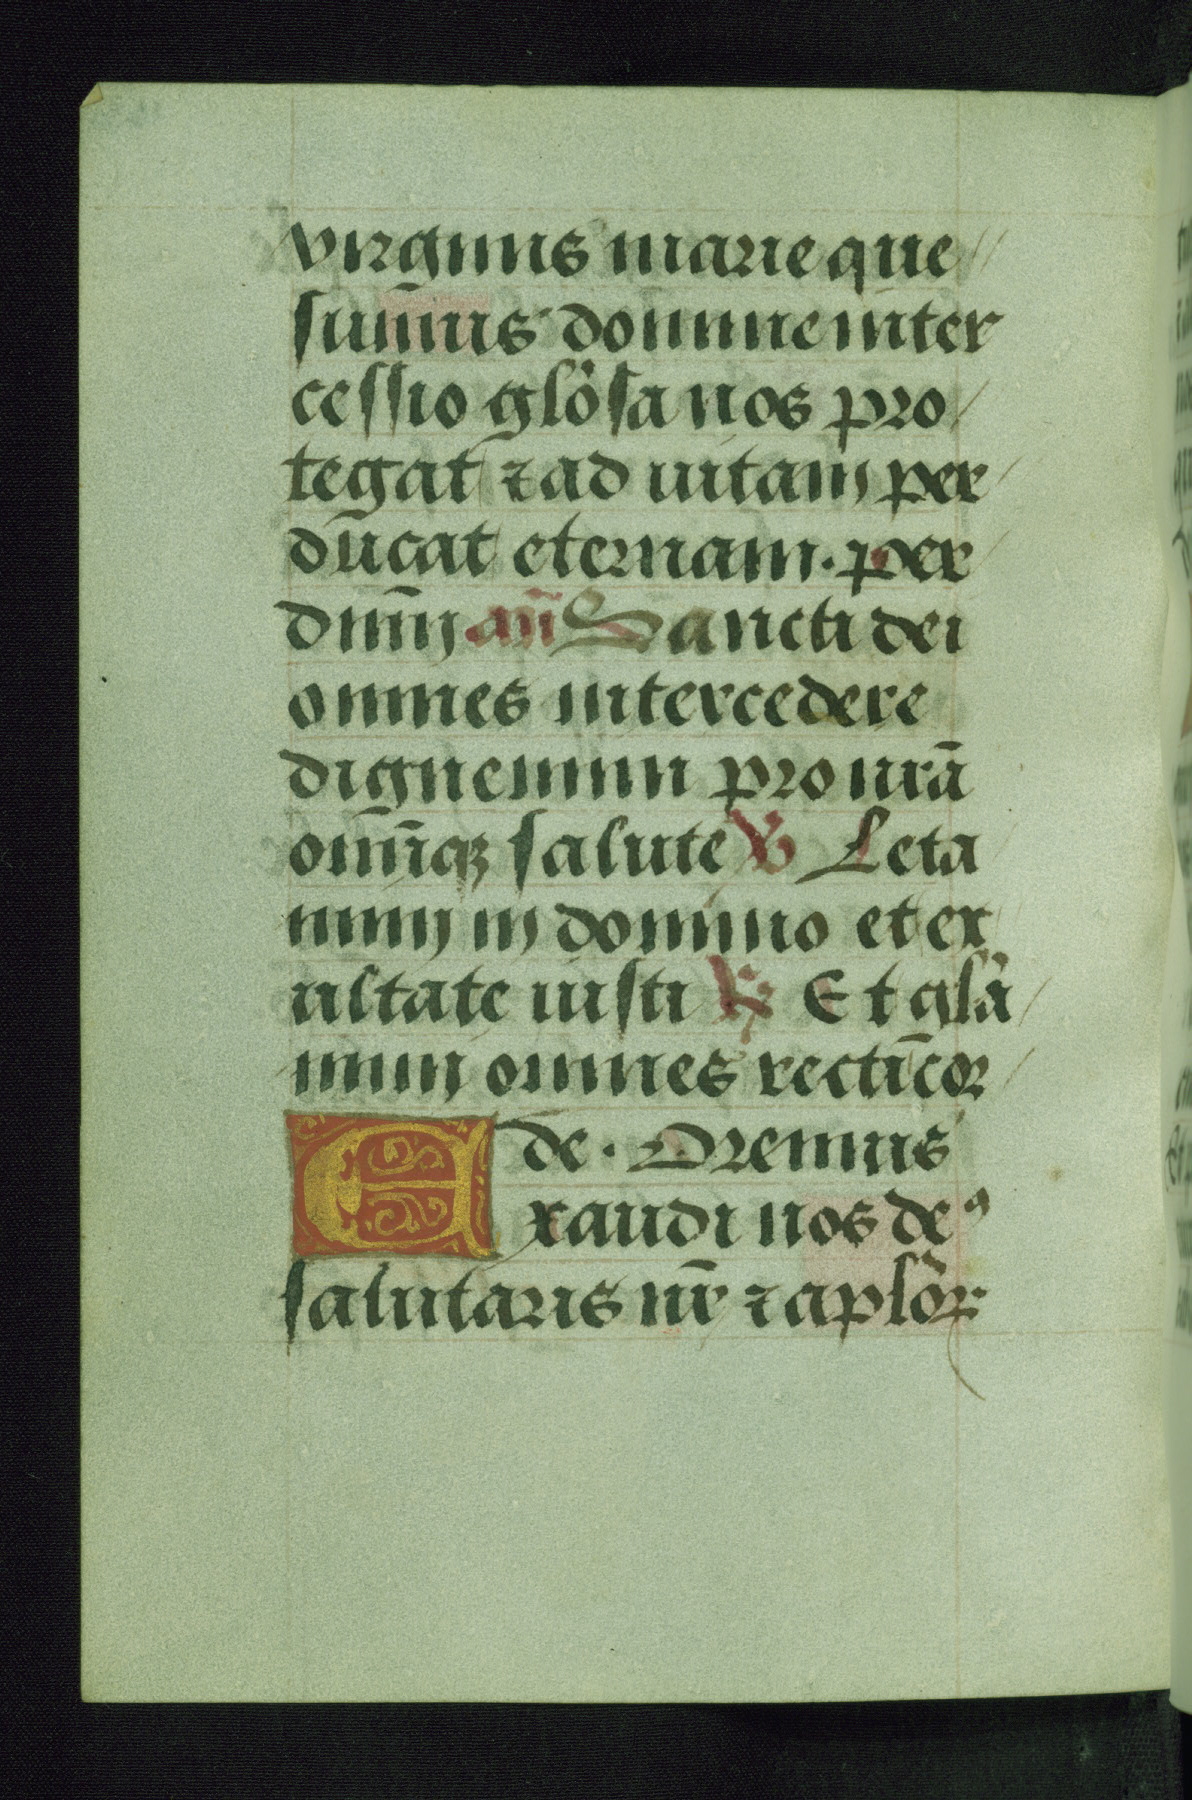 virginis marie que
sum̄us domine inter
cessio glo̅sa nos pro
tegat ⁊ ad uitam per
ducat eternam. per
dnm̄ an̄ Sancti dei
omnes intercedere
dignemini pro nr̄ā
omniq̄ꝫ salute ℣ Leta
mini in domino et ex
ultate iusti ℟ Et gl̄a
mini omnes recti cor
de. Oremus
Exaudi nos deꝰ
salutaris nr̄ ⁊ aplo̅ꝝ